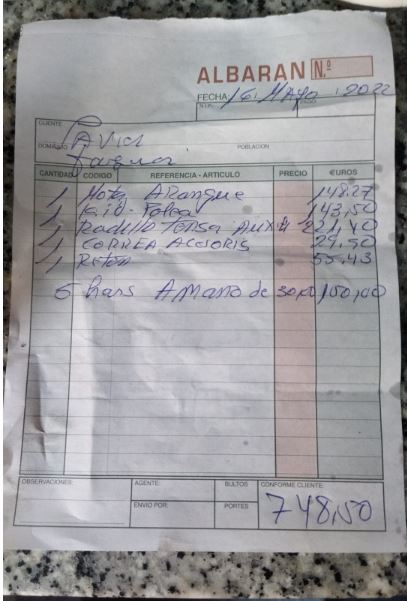 ALBARAN N.º
FECHA: 16 MAYO 2022
N.I.F.:
CLIENTE
DOMICILIO POBLACION
CANTIDAD CODIGO REFERENCIA - ARTICULO PRECIO €UROS
1 Mota ARanque 148.27
1 Kid-Polea 143,50
1 Rodillo Tensa AUX 221,40
1 CORREA ACesoris 29.90
1 Reten 55.43
5 hars A MANO de 30,00 150,00
OBSERVACIONES: AGENTE: BULTOS CONFORME CLIENTE:
ENVIO POR: PORTES
748,50